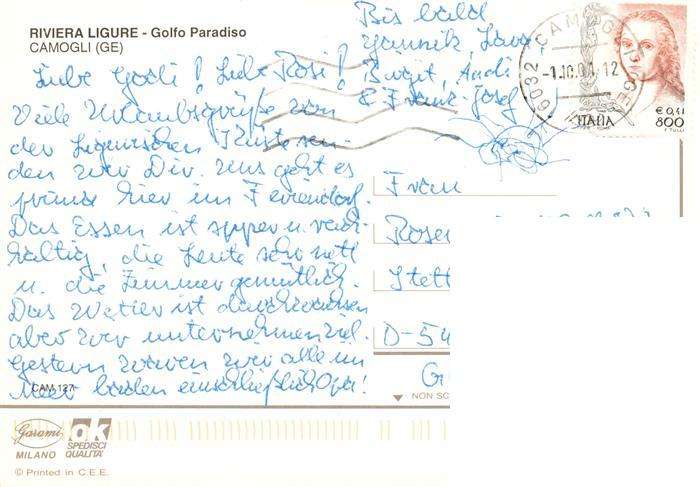 RIVIERA LIGURE - Golfo Paradiso
CAMOGLI (GE)
Liebe Godi! Liebe Rosi!
Viele Urlaubsgrüße von
der Ligurischen Küste sen-
den wir Dir. Uns geht es
prima hier im Feriendorf.
Das Essen ist üppig u. reich-
haltig, die Leute sehr nett
u. die Zimmer gemütlich.
Das Wetter ist durchwachsen
aber wir unternehmen viel.
Gestern waren wir alle im
Meer baden einschließlich Opa!
Bis bald
Yannik,
Birgit, Andi
& Franz Josef
CAMOGLI GE
16032
-1.10.01.12
€ 0,41
800
ITALIA
Frau
Rosen
Stett
D-54
G
CAM 127
NON SC
Garami
MILANO
ok
SPEDISCI
QUALITÀ
© Printed in C.E.E.